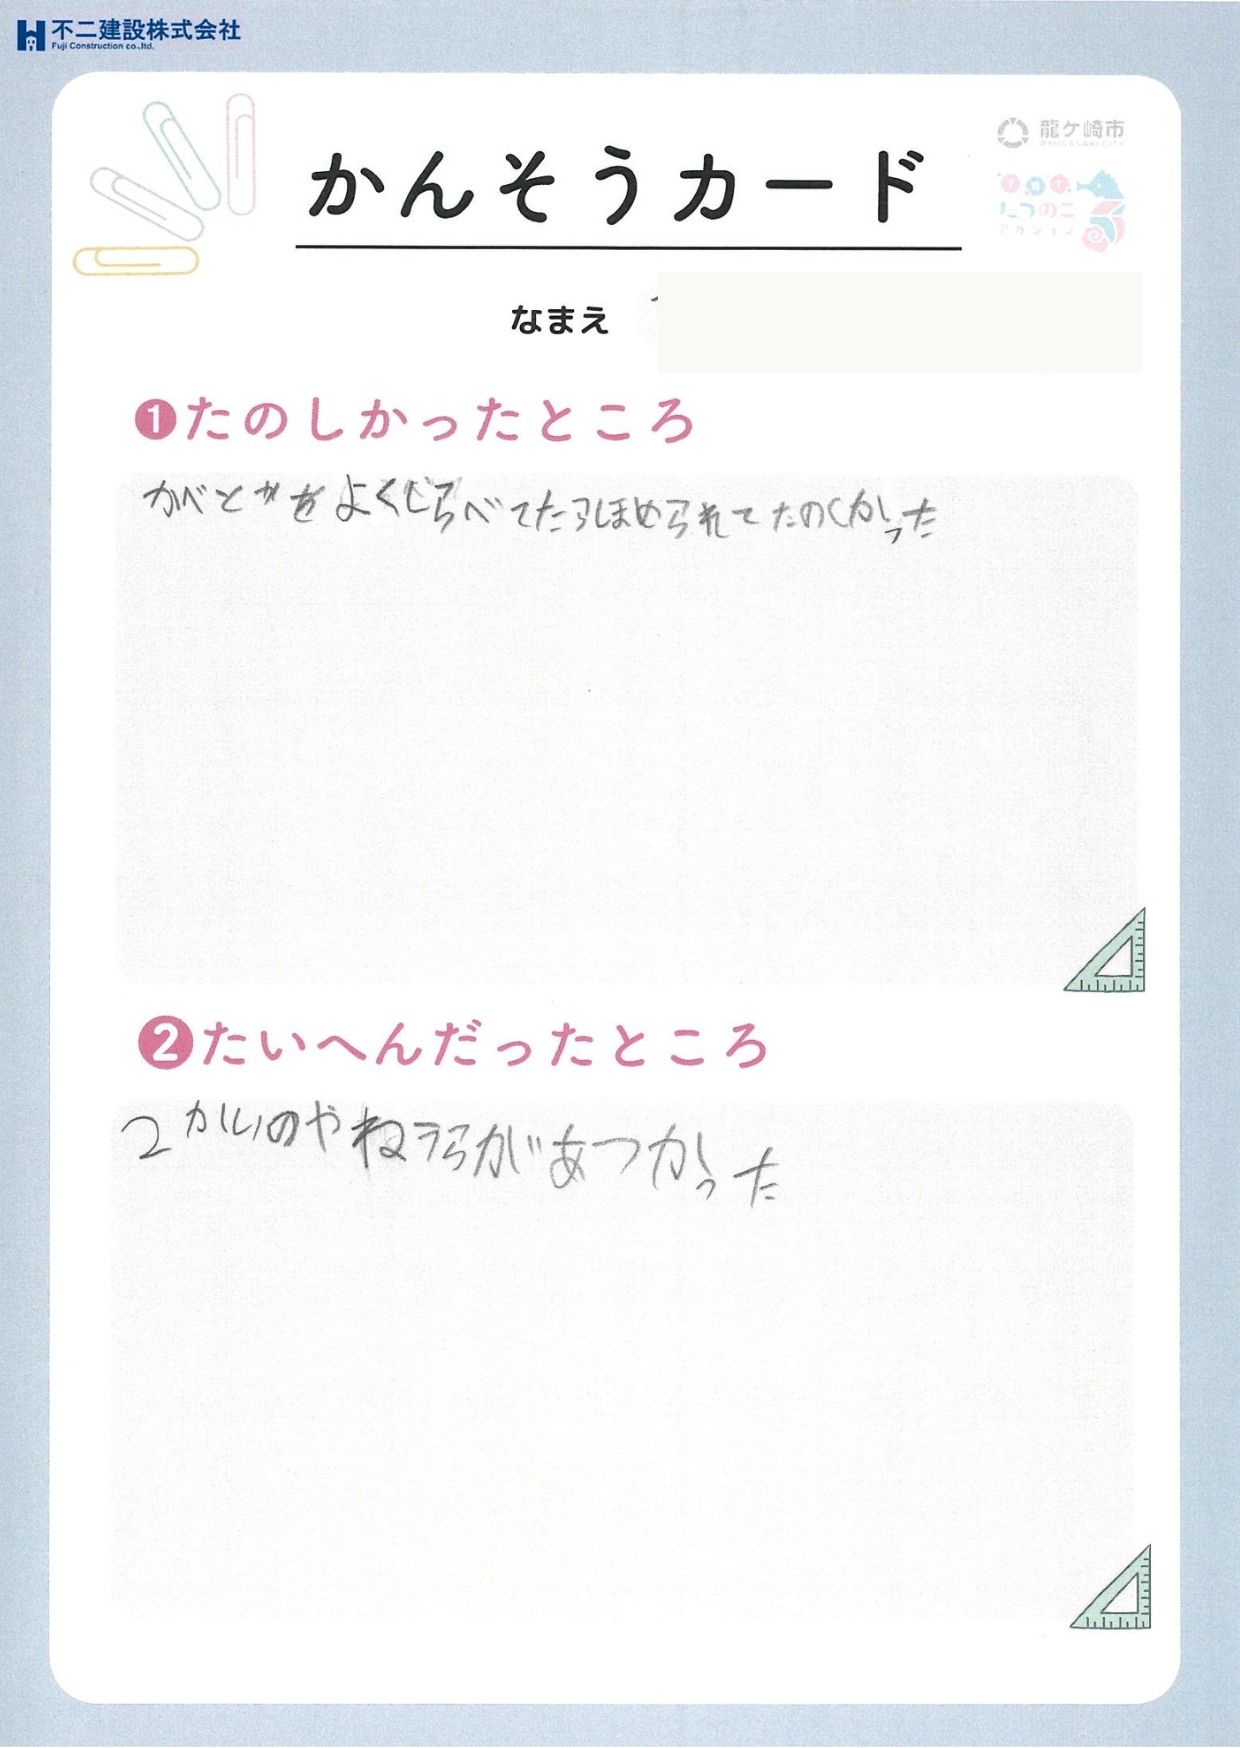 不二建設株式会社
Fuji Construction co.,ltd.
龍ケ崎市
RYUGASAKI CITY
かんそうカード
たつのこ
アクション
なまえ
❶たのしかったところ
かべとかをよくしらべてたらほめられてたのしかった
❷たいへんだったところ
2かいのやねうらがあつかった